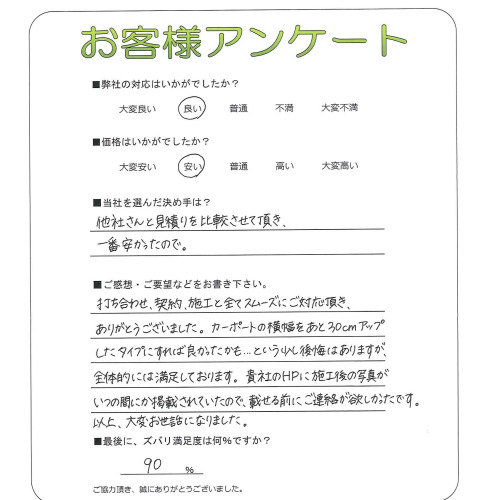 お客様アンケート
■弊社の対応はいかがでしたか？
大変良い 良い 普通 不満 大変不満
■価格はいかがでしたか？
大変安い 安い 普通 高い 大変高い
■当社を選んだ決め手は？
他社さんと見積りを比較させて頂き、
一番安かったので。
■ご感想・ご要望などをお書き下さい。
打ち合わせ、契約、施工と全てスムーズにご対応頂き、
ありがとうございました。カーポートの横幅をあと30cmアップ
したタイプにすれば良かったかも…という少し後悔はありますが、
全体的には満足しております。貴社のHPに施工後の写真が
いつの間にか掲載されていたので、載せる前にご連絡が欲しかったです。
以上、大変お世話になりました。
■最後に、ズバリ満足度は何％ですか？
90 ％
ご協力頂き、誠にありがとうございました。